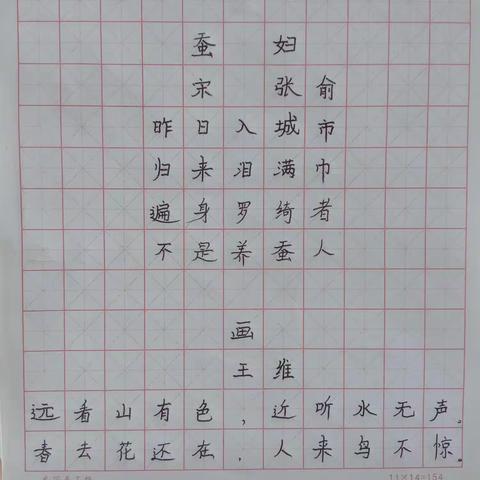 蚕 妇
宋 张俞
昨日入城市
归来泪满巾
遍身罗绮者
不是养蚕人
画
王维
远看山有色，近听水无声。
春去花还在，人来鸟不惊。
11×14=154